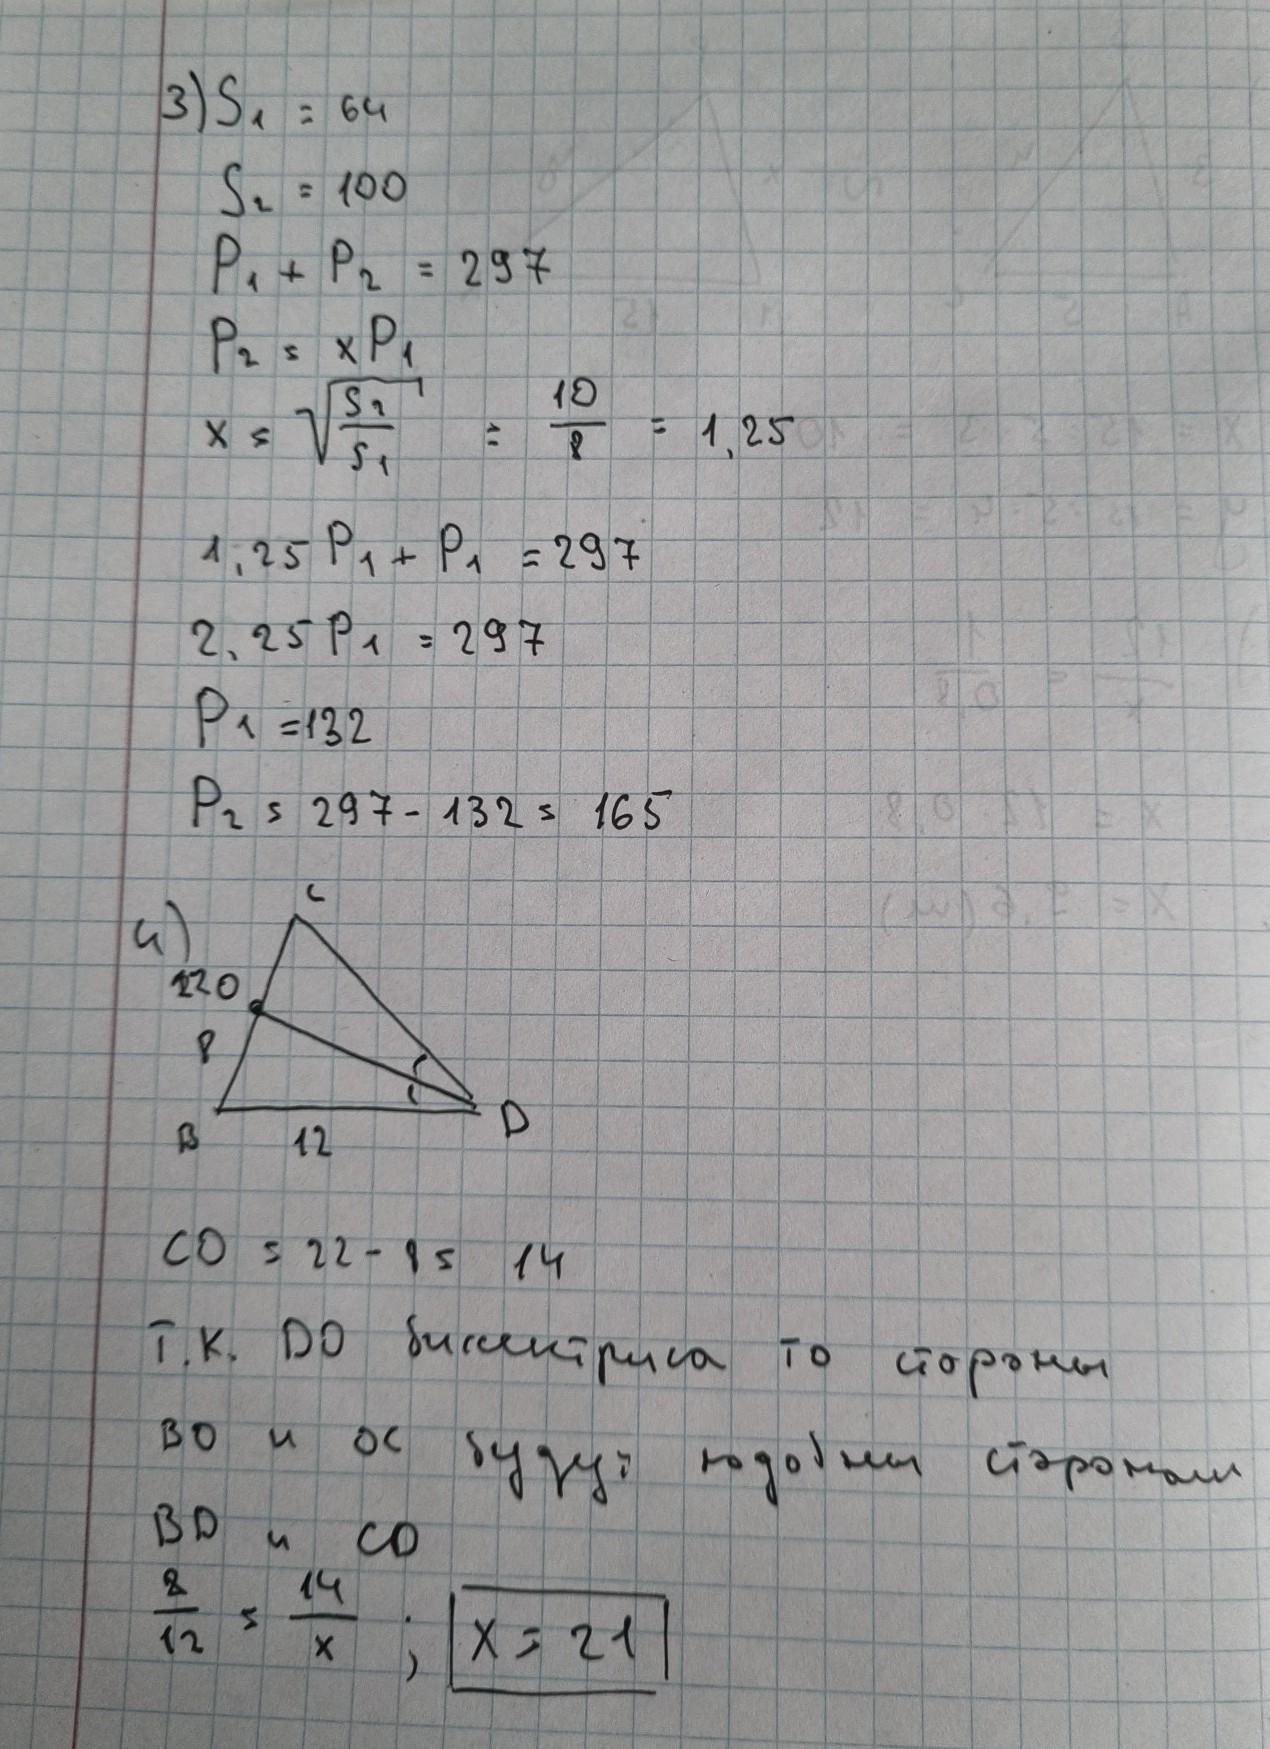 3) S₁ = 64
S₂ = 100
P₁ + P₂ = 297
P₂ = xP₁
x = √(S₂/S₁) = 10/8 = 1,25
1,25 P₁ + P₁ = 297
2,25 P₁ = 297
P₁ = 132
P₂ = 297 - 132 = 165
4)
C
O
8
B
12
D
CO = 22 - 8 = 14
Т.К. DO биссектриса то стороны
BO и OC будут подобны сторонам
BD и CD
8/12 = 14/x ; x = 21